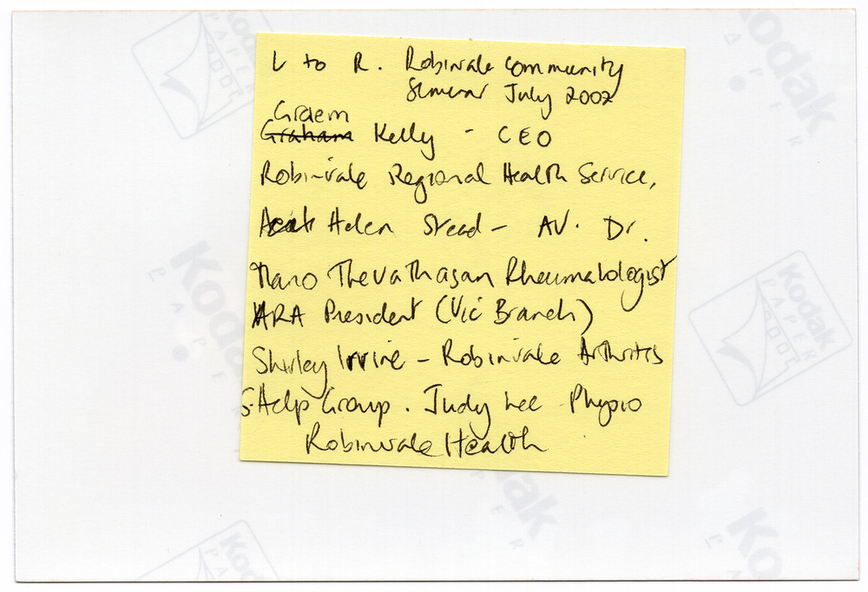 L to R. Robinvale Community
Seminar July 2002
Graem
Graham Kelly - CEO
Robinvale Regional Health Service,
Helen Stead - AV. Dr.
Mano Thevathasan Rheumatologist
ARA President (Vic Branch)
Shirley Irvine - Robinvale Arthritis
S.Help Group. Judy Lee Physio
Robinvale Health
Kodak
PAPER
Kodak
PAPER
Kodak
PAPER
Kodak
PAPER